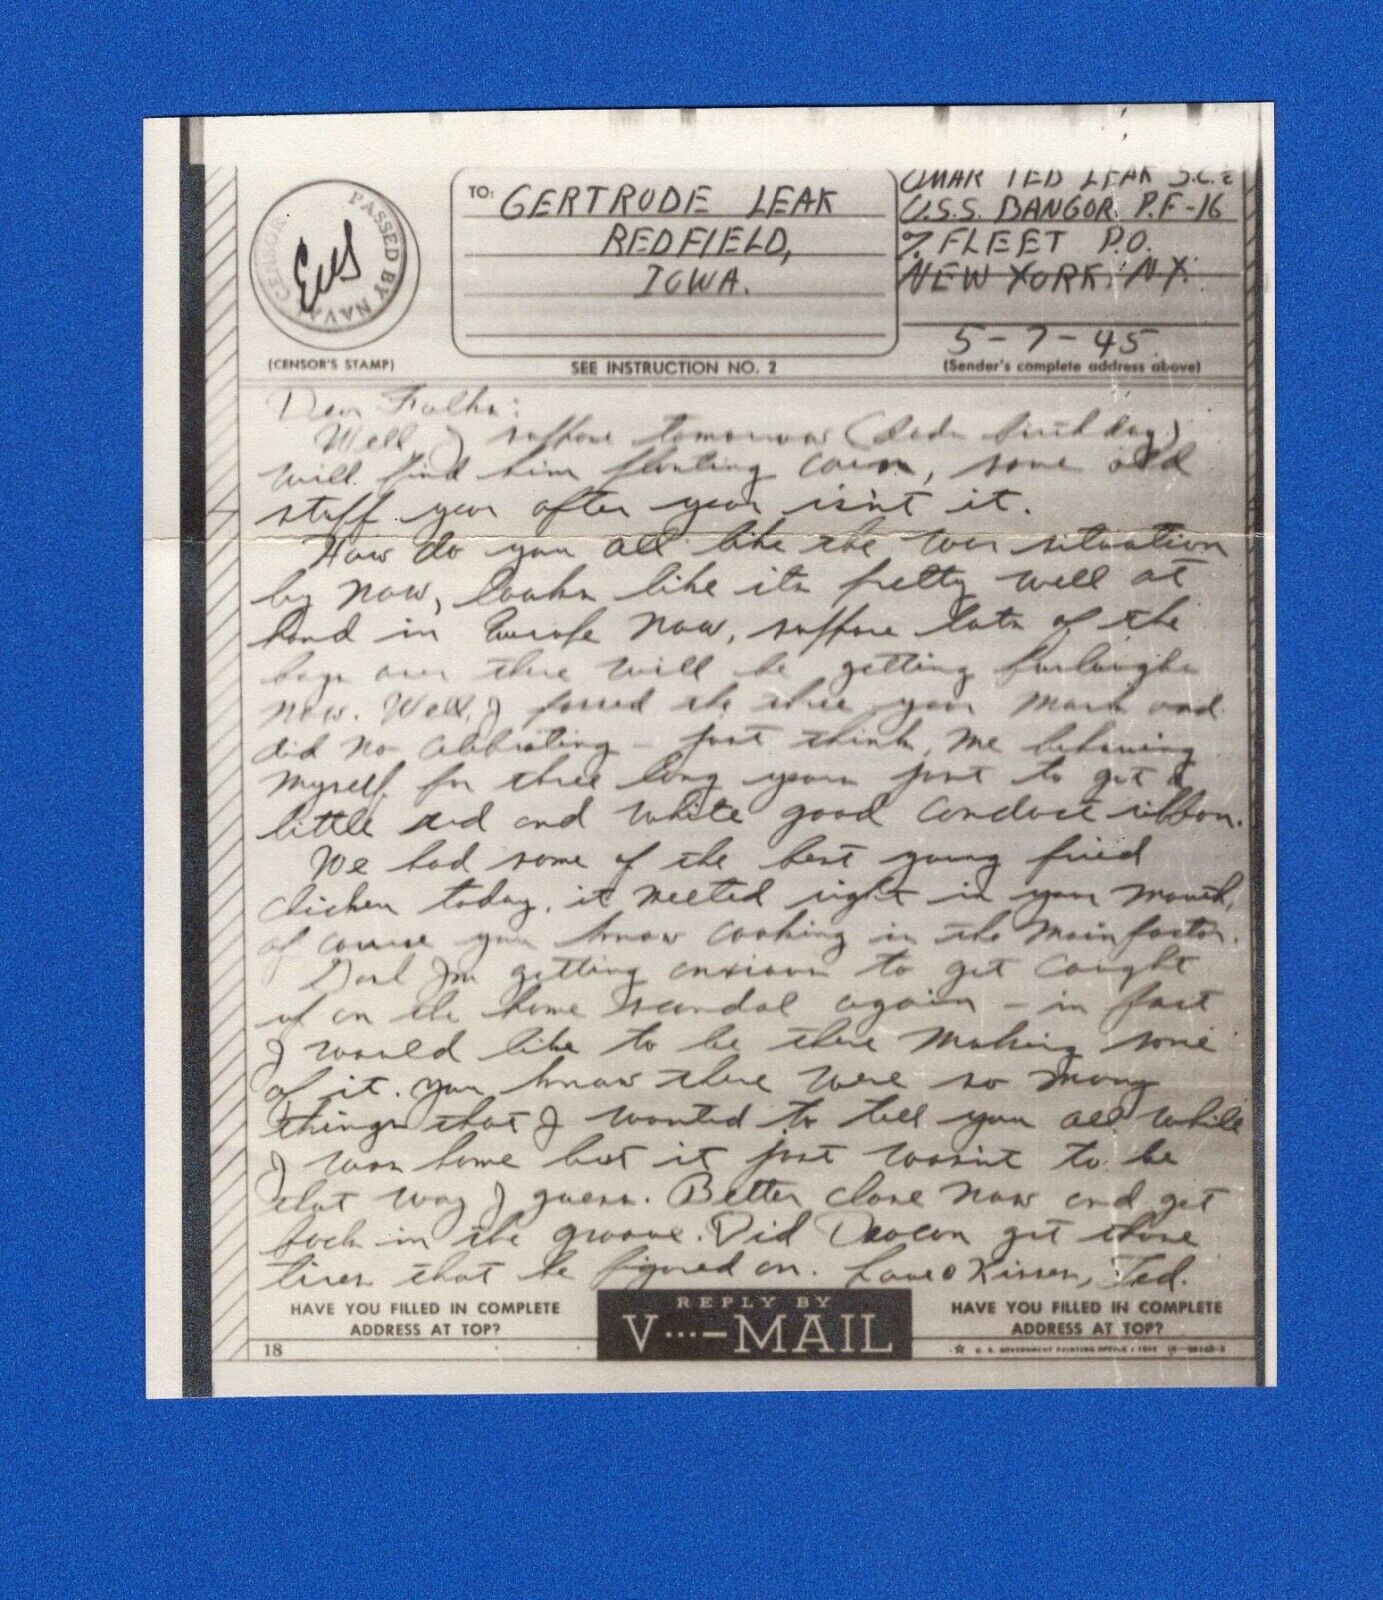 PASSED BY NAVAL CENSOR
(CENSOR'S STAMP)
TO: GERTRUDE LEAK
REDFIELD,
IOWA.
SEE INSTRUCTION NO. 2
OMAR TED LEAK S.C.2
U.S.S. BANGOR. P.F-16
% FLEET P.O.
NEW YORK, N.Y.
5-7-45.
(Sender's complete address above)
Dear Folks:
Well, I suppose tomorrow (Dads birthday)
will find him planting corn, same old
stuff year after year isn't it.
How do you all like the war situation
by now, looks like its pretty well at
hand in Europe now, suppose lots of the
boys over there will be getting furloughs
now. Well, I passed the three year mark and
did no celibrating - just think, me behaving
myself for three long years just to get a
little red and white good conduct ribbon.
We had some of the best young fried
chicken today, it melted right in your mouth,
of course you know cooking is the main factor.
Gosh I'm getting anxious to get caught
up on the home scandal again - in fact
I would like to be there making some
of it. You know there were so many
things that I wanted to tell you all while
I was home but it just wasn't to be
that way I guess. Better close now and get
back in the groove. Did Deacon get those
tires that he figured on. Love & Kisses, Ted.
HAVE YOU FILLED IN COMPLETE
ADDRESS AT TOP?
REPLY BY
V···—MAIL
HAVE YOU FILLED IN COMPLETE
ADDRESS AT TOP?
18
☆ U. S. GOVERNMENT PRINTING OFFICE